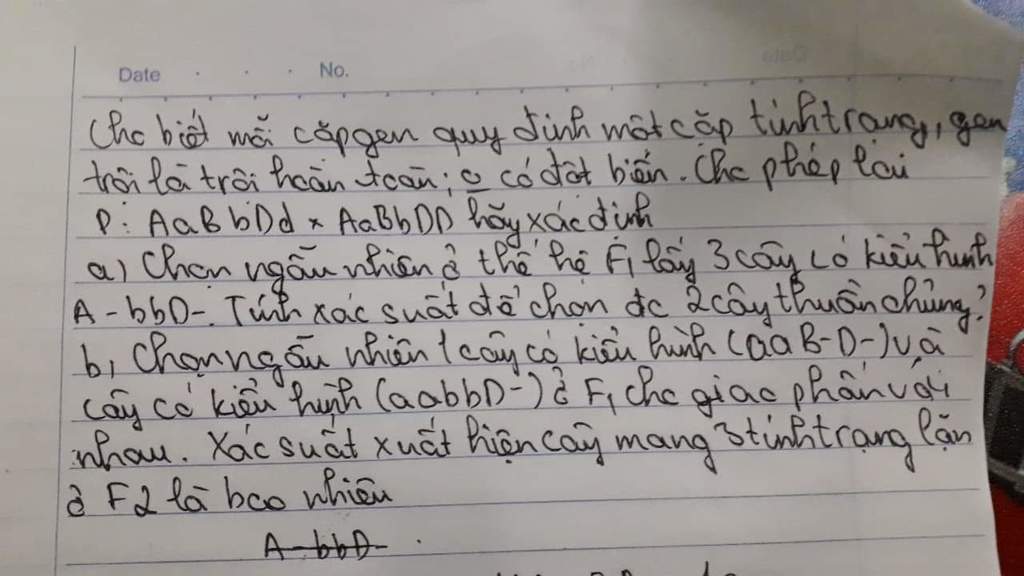 Date . . . No.
Cho biết mỗi cặp gen quy định một cặp tính trạng, gen
trội là trội hoàn toàn; o có đột biến. Cho phép lai
P: AaBbDd x AaBbDD hãy xác định
a) Chọn ngẫu nhiên ở thế hệ F1 lấy 3 cây có kiểu hình
A-bbD-. Tính xác suất để chọn đc 2 cây thuần chủng?
b, Chọn ngẫu nhiên 1 cây có kiểu hình (aaB-D-) và
cây có kiểu hình (aabbD-) ở F1 cho giao phấn với
nhau. Xác suất xuất hiện cây mang 3 tính trạng lặn
ở F2 là bao nhiêu
A-bbD-